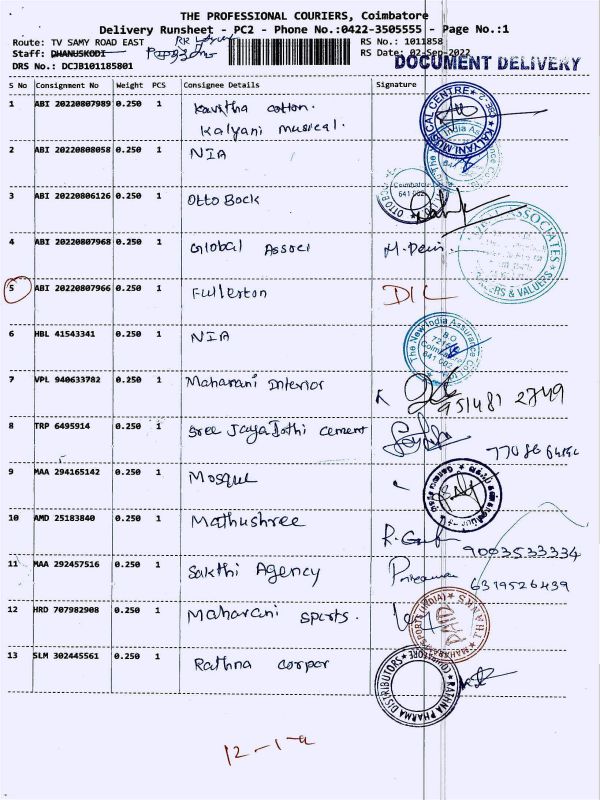 THE PROFESSIONAL COURIERS, Coimbatore
Delivery Runsheet - PC2 - Phone No.:0422-3505555 - Page No.:1
Route: TV SAMY ROAD EAST
RS No.: 1011858
Staff: DHANUSKODI
RS Date: 02-Sep-2022
DOCUMENT DELIVERY
DRS No.: DCJB101185801
S No Consignment No Weight PCS Consignee Details Signature
1 ABI 20220807989 0.250 1 Kavitha cotton.
Kalyani musical.
KALYANI MUSICAL CENTRE
2 ABI 20220808058 0.250 1 NIA
3 ABI 20220806126 0.250 1 Otto Bock
Coimbatore
641 002
4 ABI 20220807968 0.250 1 Global Associ
ASSOCIATES
& VALUERS
5 ABI 20220807966 0.250 1 Fullerton D/L
6 HBL 41543341 0.250 1 NIA
The New India Assurance Co
B.O
7 VPL 940633782 0.250 1 Maharani Interior
951481 2749
8 TRP 6495914 0.250 1 Sree Jaya Jothi cement
9 MAA 294165142 0.250 1 Mosque
10 AMD 25183840 0.250 1 Mathushree
9003533334
11 MAA 292457516 0.250 1 Sakthi Agency
6319526439
12 HRD 707982908 0.250 1 Maharani sports.
MAHARANI SPORTS (INDIA)
THANKS
PAID
13 SLM 302445561 0.250 1 Rathna corpor
RATHNA PHARMA DISTRIBUTORS